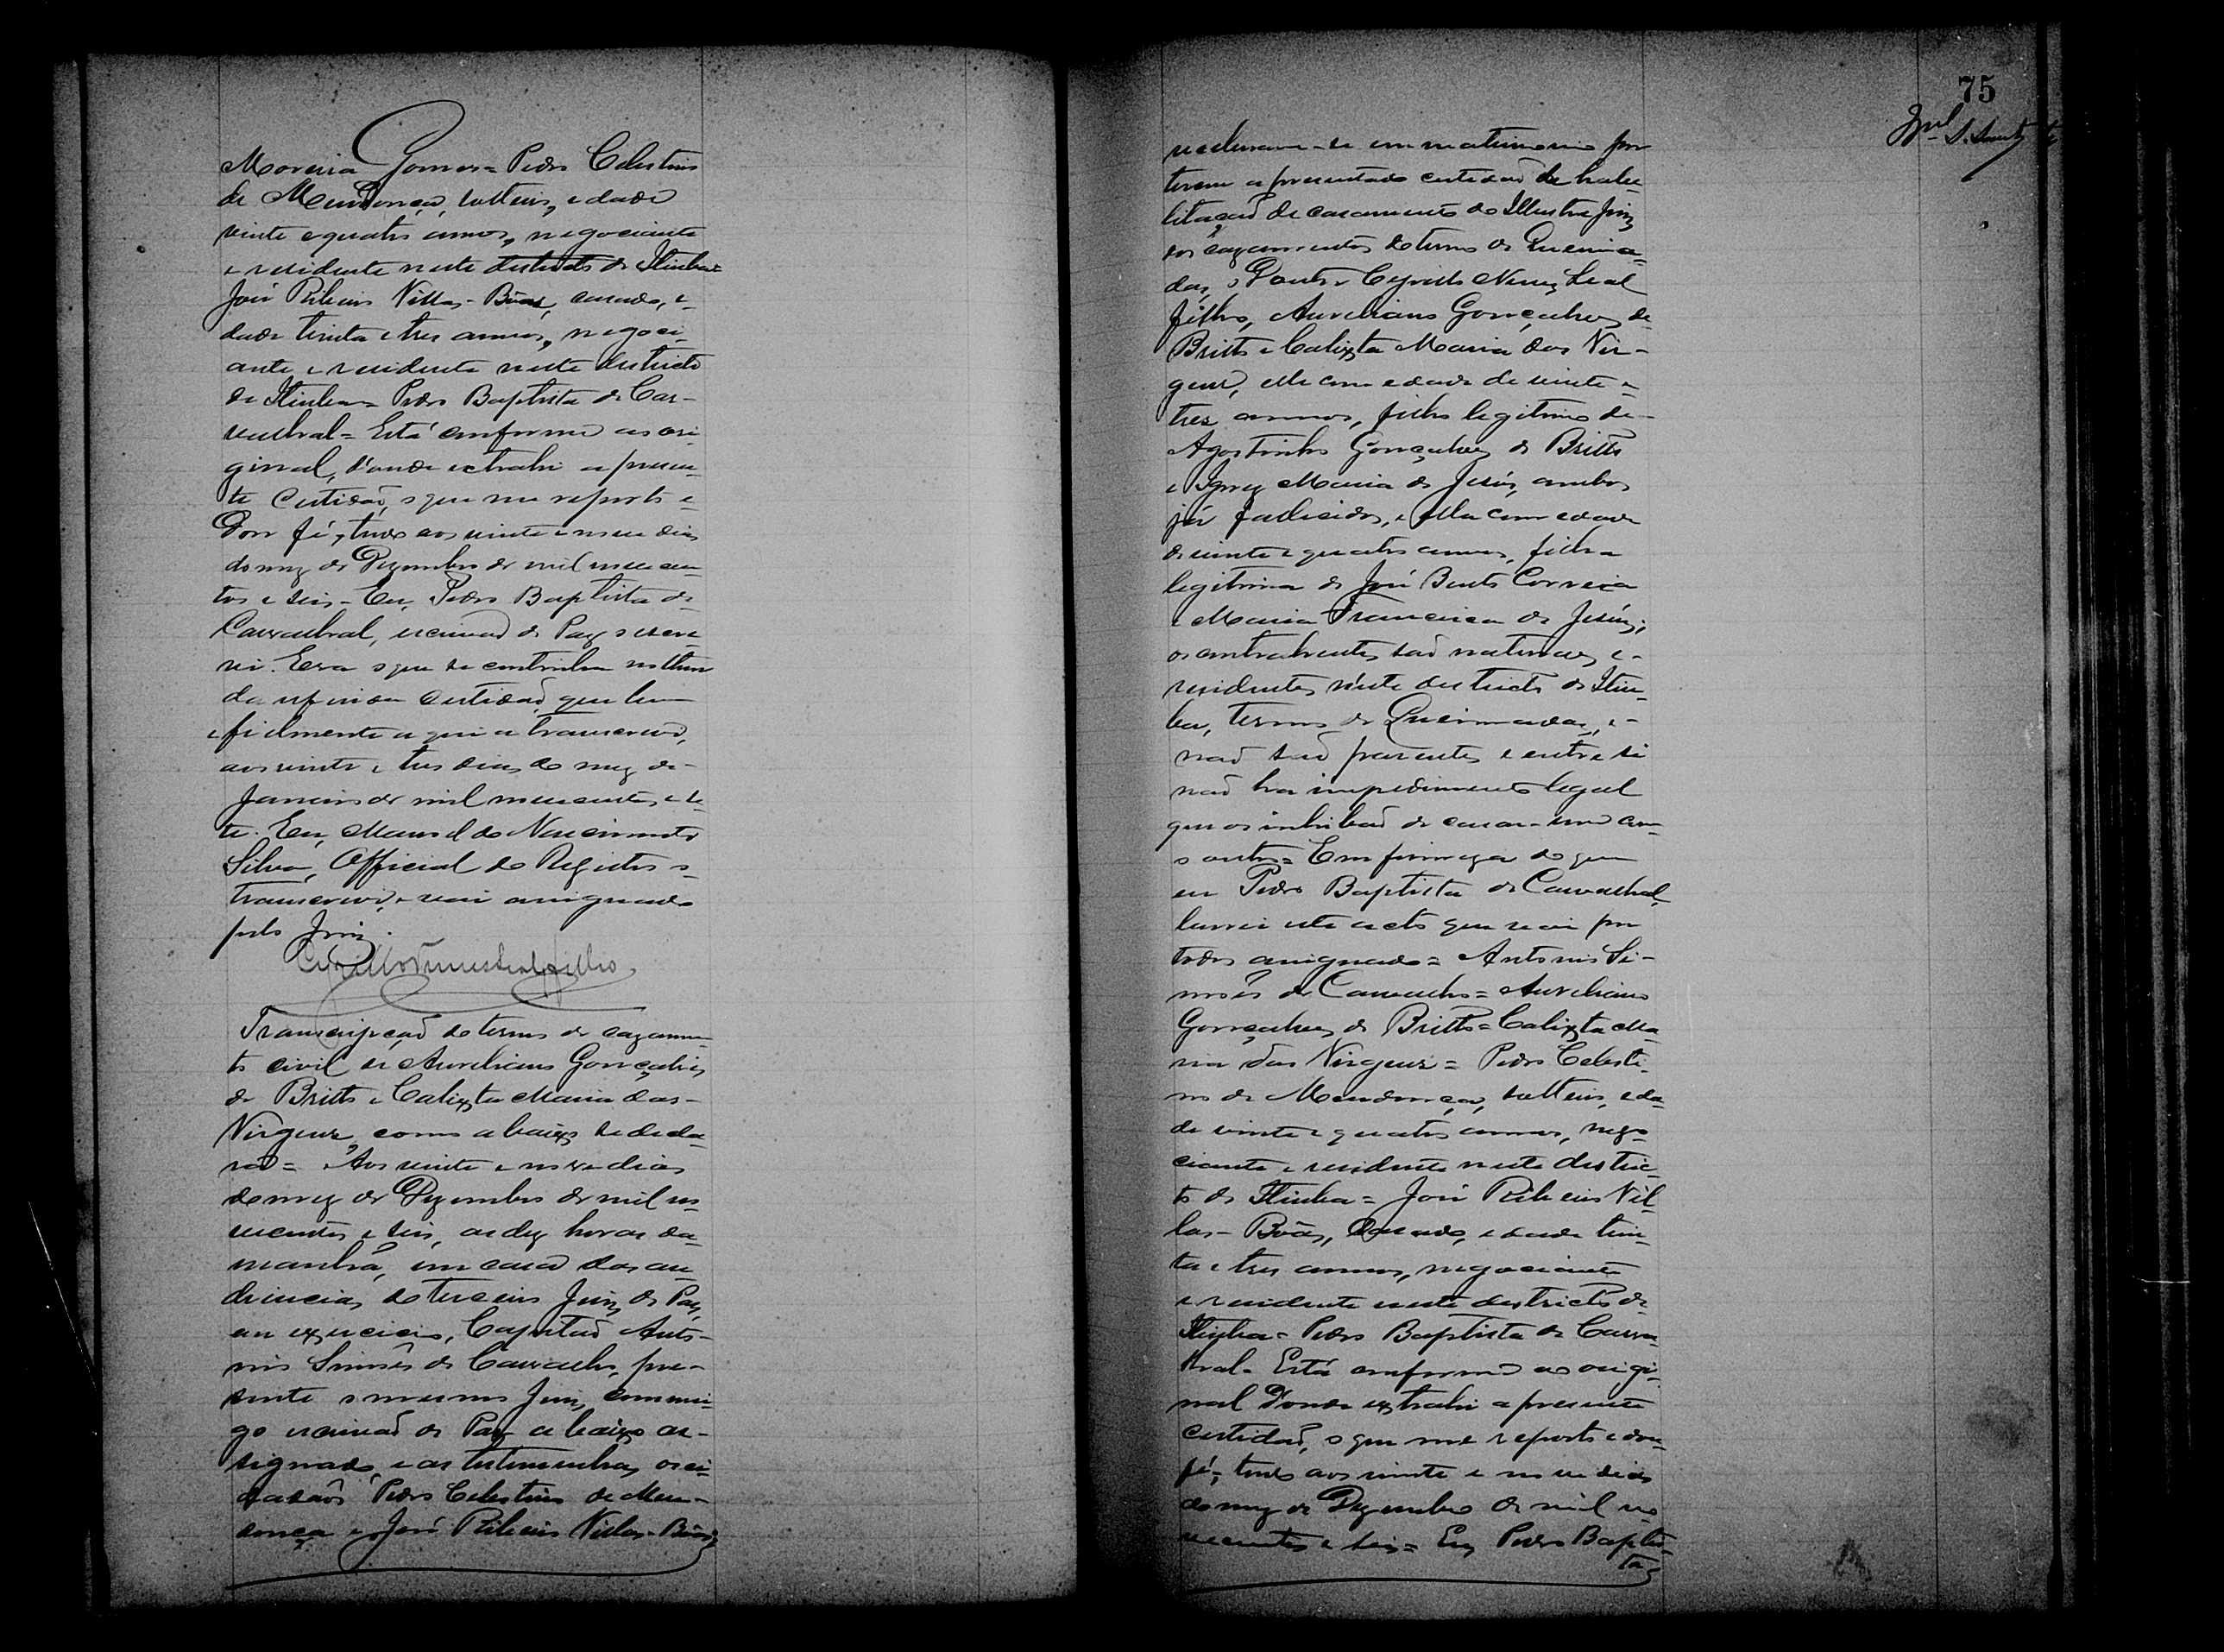 Moreira Gomes = Pedro Celestino
de Mendonça, solteiro, edade
vinte e quatro annos, negociante
e residente neste districto de Itiuba =
José Ribeiro Villas-Bôas, casado, e-
dade trinta e tres annos, negoci-
ante e residente neste districto
de Itiuba = Pedro Baptista de Car-
vasthral = Está conforme ao ori-
ginal, d'onde extrahi a presen-
te certidaõ, o que me reporto e
Dou fé, tudo aos vinte e nove dias
do mez de Dezembro de mil novecen-
tos e seis - Eu, Pedro Baptista de
Carvasthral, escrivaõ de Paz o escre-
vi. Era o que se continha
da referida certidaõ, que bem
e fielmente aqui a transcrevo,
aos vinte e tres dias do mez de
Janeiro de mil novecentos e se-
te. Eu, Manoel do Nascimento
Silva, Official do Registro o
transcrevi, e vai assignado
pelo Juiz.
Cyrillo Nunes Leal filho
Transcripçaõ do termo de cazamen-
to civil de Aureliano Gonçalves
de Britto e Calixta Maria das
Virgens, como abaixo se decla-
ra = Aos vinte e nove dias
do mez de Dezembro de mil no-
vecentos e seis, as dez horas da
manhã, em casa das au-
diencias do terceiro Juiz de Paz
em exercicio, Capitaõ Anto-
nio Simões de Carvalho, pre-
sente o mesmo Juiz, commi-
go escrivaõ de Paz abaixo as-
signado, e as testemunhas os ci-
dadaõs Pedro Celestino de Men-
donça e José Ribeiro Villas-Bôas,
75
receberam-se em matrimonio por
terem apresentado certidaõ de habe-
litaçaõ de casamento do Illustre Juiz
dos cazamentos do termo de Queima-
das, o Doutor Cyrillo Nunes Leal
filho, Aureliano Gonçalves de
Britto e Calixta Maria das Vir-
gens, elle com edade de vinte e
tres annos, filho legitimo de
Agostinho Gonçalves de Britto
e Ignez Maria de Jesús, ambos
já fallecidos, e ella com edade
de vinte e quatro annos, filha
legitima de José Bento Correia
e Maria Francisca de Jesús;
os contrahentes saõ naturaes e
residentes n'este districto de Itiu-
ba, termo de Queimadas, e
naõ saõ parentes e entre si
naõ ha impedimento legal
que os inhibaõ de casar-se um com
o outro = Em firmeza do que
eu Pedro Baptista de Carvasthral,
lavrei este acto que vai por
todos assignado = Antonio Si-
mões de Carvalho = Aureliano
Gonçalves de Britto = Calixta Ma-
ria das Virgens = Pedro Celesti-
no de Mendonça, solteiro, eda-
de vinte e quatro annos, nego-
ciante e residente neste distric-
to de Itiuba = José Ribeiro Vil-
las-Bôas, casado, edade trin-
ta e tres annos, negociante
e residente neste districto de
Itiuba = Pedro Baptista de Carvas-
thral = Está conforme ao origi-
nal d'onde extrahi a presente
certidaõ, o que me reporto e dou
fé, tudo aos vinte e nove dias
do mez de Dezembro de mil no-
vecentos e seis = Eu, Pedro Baptis-
ta